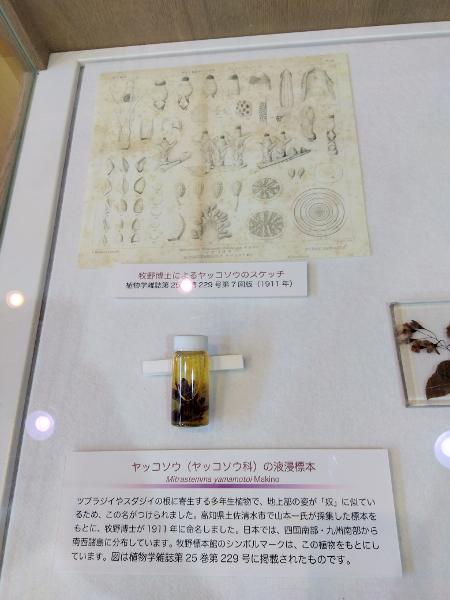 牧野博士によるヤッコソウのスケッチ
植物学雑誌第25巻229号第7図版（1911年）
ヤッコソウ（ヤッコソウ科）の液浸標本
Mitrastemma yamamotoi Makino
ツブラジイやスダジイの根に寄生する多年生植物で、地上部の姿が「奴」に似てい
るため、この名がつけられました。高知県土佐清水市で山本一氏が採集した標本を
もとに、牧野博士が1911年に命名しました。日本では、四国南部・九州南部から
南西諸島に分布しています。牧野標本館のシンボルマークは、この植物をもとにし
ています。図は植物学雑誌第25巻第229号に掲載されたものです。